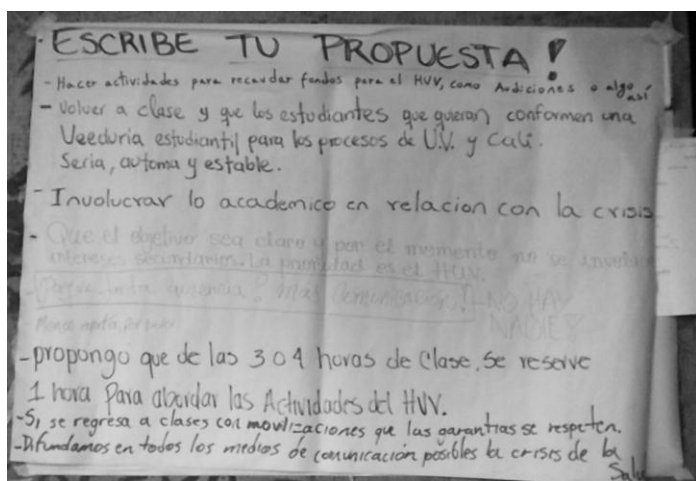 ESCRIBE TU PROPUESTA!
- Hacer actividades para recaudar fondos para el HUV, como Audiciones o algo así
- Volver a clase y que los estudiantes que quieran conformen una
Veeduria estudiantil para los procesos de U.V. y Cali.
Seria, automa y estable.
- Involucrar lo academico en relacion con la crisis
- Que el objetivo sea claro y por el momento no se involucren
intereses secundarios. La prioridad es el HUV.
- Porque tanta ausencia? Más Comunicación! - NO HAY
NADIE!
- Menos
- propongo que de las 3 o 4 horas de Clase, se reserve
1 hora Para abordar las Actividades del HUV.
- Si se regresa a clases con movilizaciones que las garantias se respeten.
- Difundamos en todos los medios de comunicación posibles la crisis de la
Salud